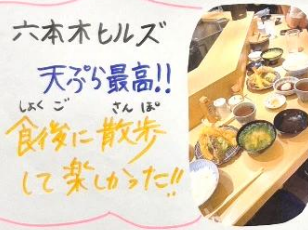 六本木ヒルズ
天ぷら最高!!
しょくご さんぽ
食後に散歩
して楽しかった!!